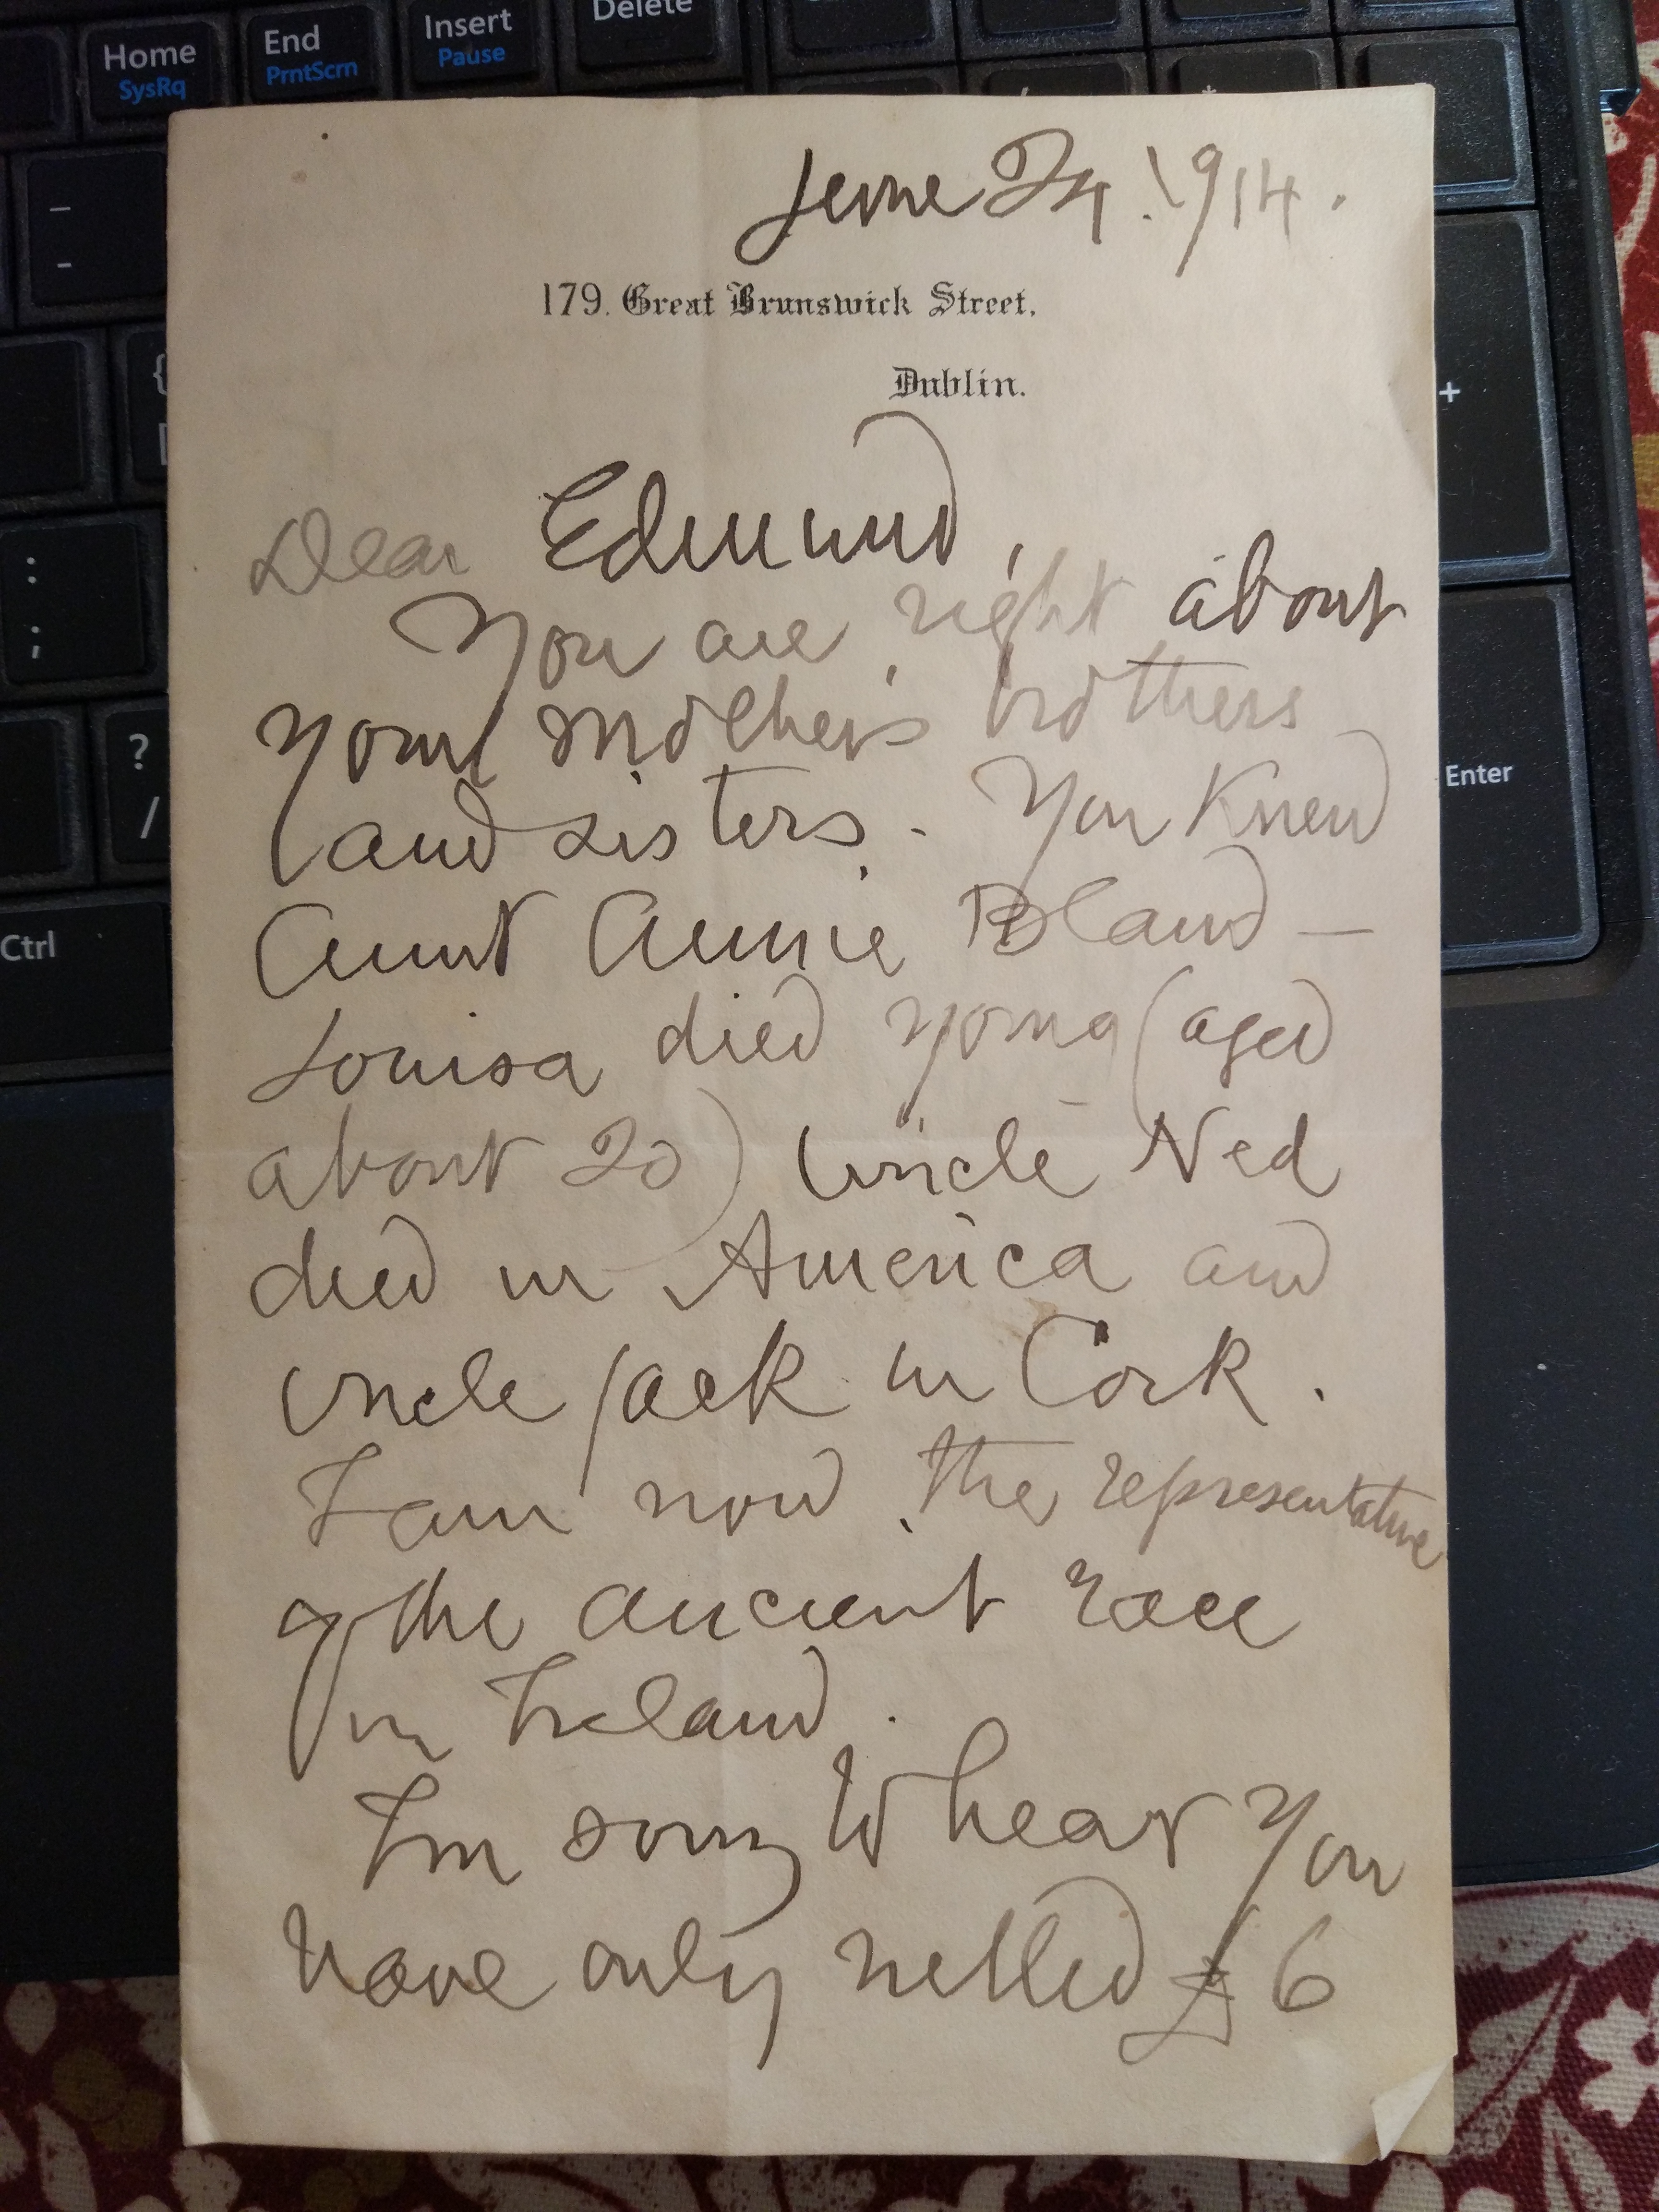 Home
SysRq
End
PrntScrn
Insert
Pause
Delete
June 24. 1914.
179. Great Brunswick Street,
Dublin.
Dear Edmund,
You are right about
your mother's brothers
and sisters. You knew
Aunt Annie Bland —
Louisa died young (aged
about 20) Uncle Ned
died in America and
Uncle Jack in Cork.
I am now the representative
of the ancient race
in Ireland.
I'm sorry to hear you
have only netted £6
_
-
{
[
:
;
?
/
Ctrl
*
+
Enter